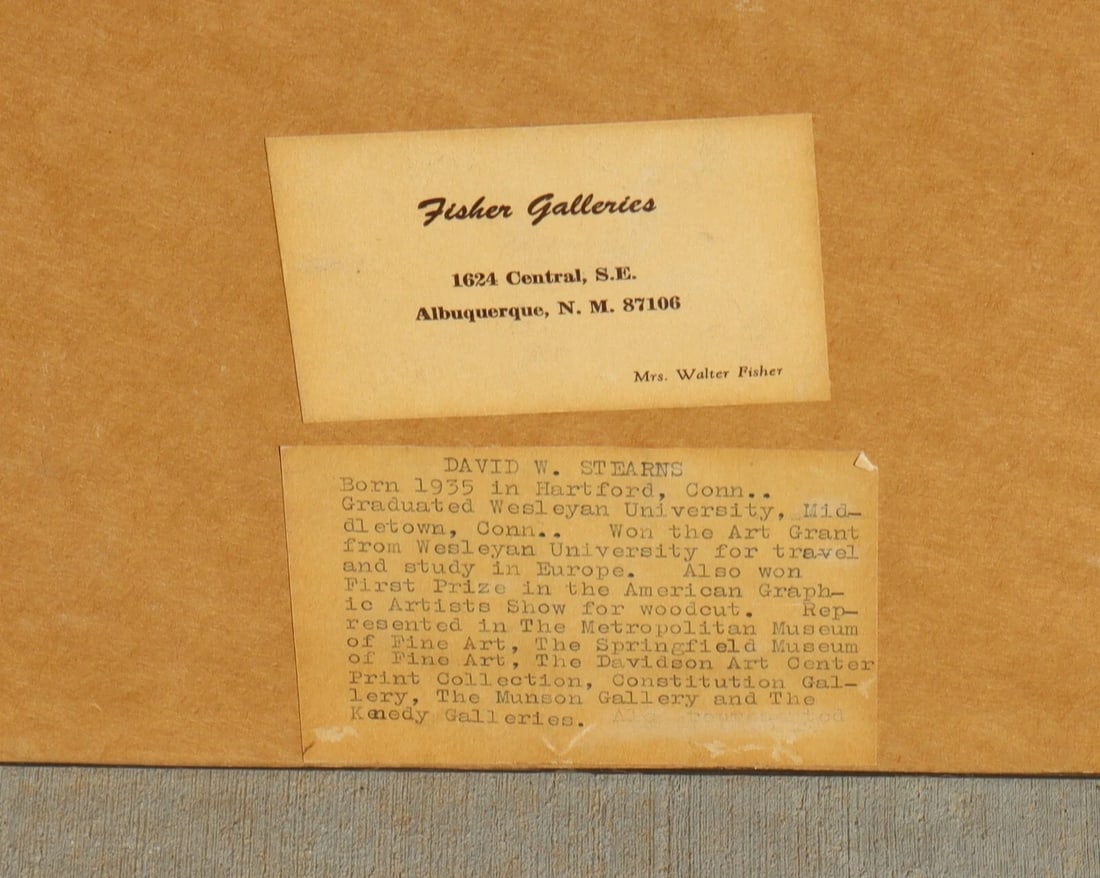 Fisher Galleries
1624 Central, S.E.
Albuquerque, N. M. 87106
Mrs. Walter Fisher
DAVID W. STEARNS
Born 1935 in Hartford, Conn..
Graduated Wesleyan University, Mid-
dletown, Conn.. Won the Art Grant
from Wesleyan University for travel
and study in Europe. Also won
First Prize in the American Graph-
ic Artists Show for woodcut. Rep-
resented in The Metropolitan Museum
of Fine Art, The Springfield Museum
of Fine Art, The Davidson Art Center
Print Collection, Constitution Gal-
lery, The Munson Gallery and The
Galleries.